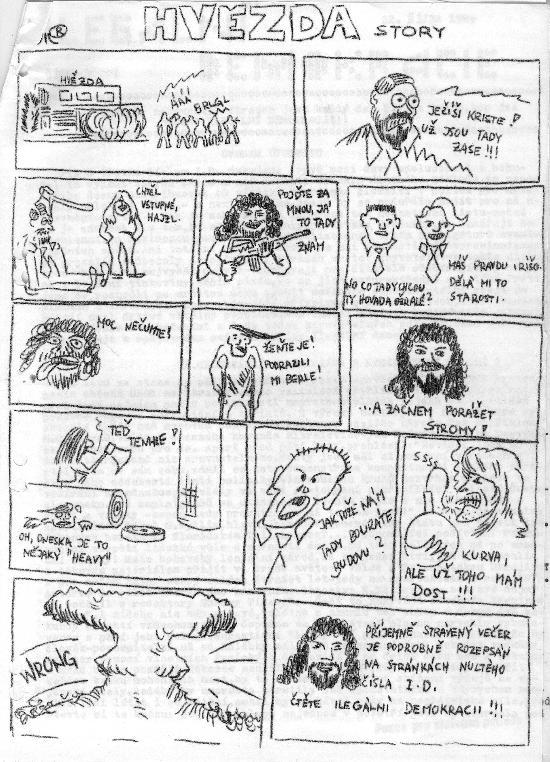 HVĚZDA STORY
HVĚZDA
ÁÁÁ
BRLAL
JEŽÍŠI KRISTE!
UŽ JSOU TADY
ZASE!!!
CHTĚL
VSTUPNÉ,
HAJZL.
POJĎTE ZA
MNOU, JÁ
TO TADY
ZNÁM
NO CO TADY CHCOU
TY HOVADA OŽRALÉ?
MÁŠ PRAVDU
DĚLÁ MI TO
STAROSTI.
MOC NEČUMTE!
ŽEŇTE JE!
PODRAZILI
MI BERLE!
...A ZAČNEM PORÁŽET
STROMY!
TEĎ
TENHLE!
OH, DNESKA JE TO
NĚJAKÝ "HEAVY"
JAKTOŽE NÁM
TADY BOURÁTE
BUDOVU?
SSSS
KURVA,
ALE UŽ TOHO MÁM
DOST!!!
WRONG
PŘÍJEMNĚ STRÁVENÝ VEČER
JE PODROBNĚ ROZEPSÁN
NA STRÁNKÁCH NULTÉHO
ČÍSLA I.D.
ČTĚTE ILEGÁLNÍ DEMOKRACII!!!